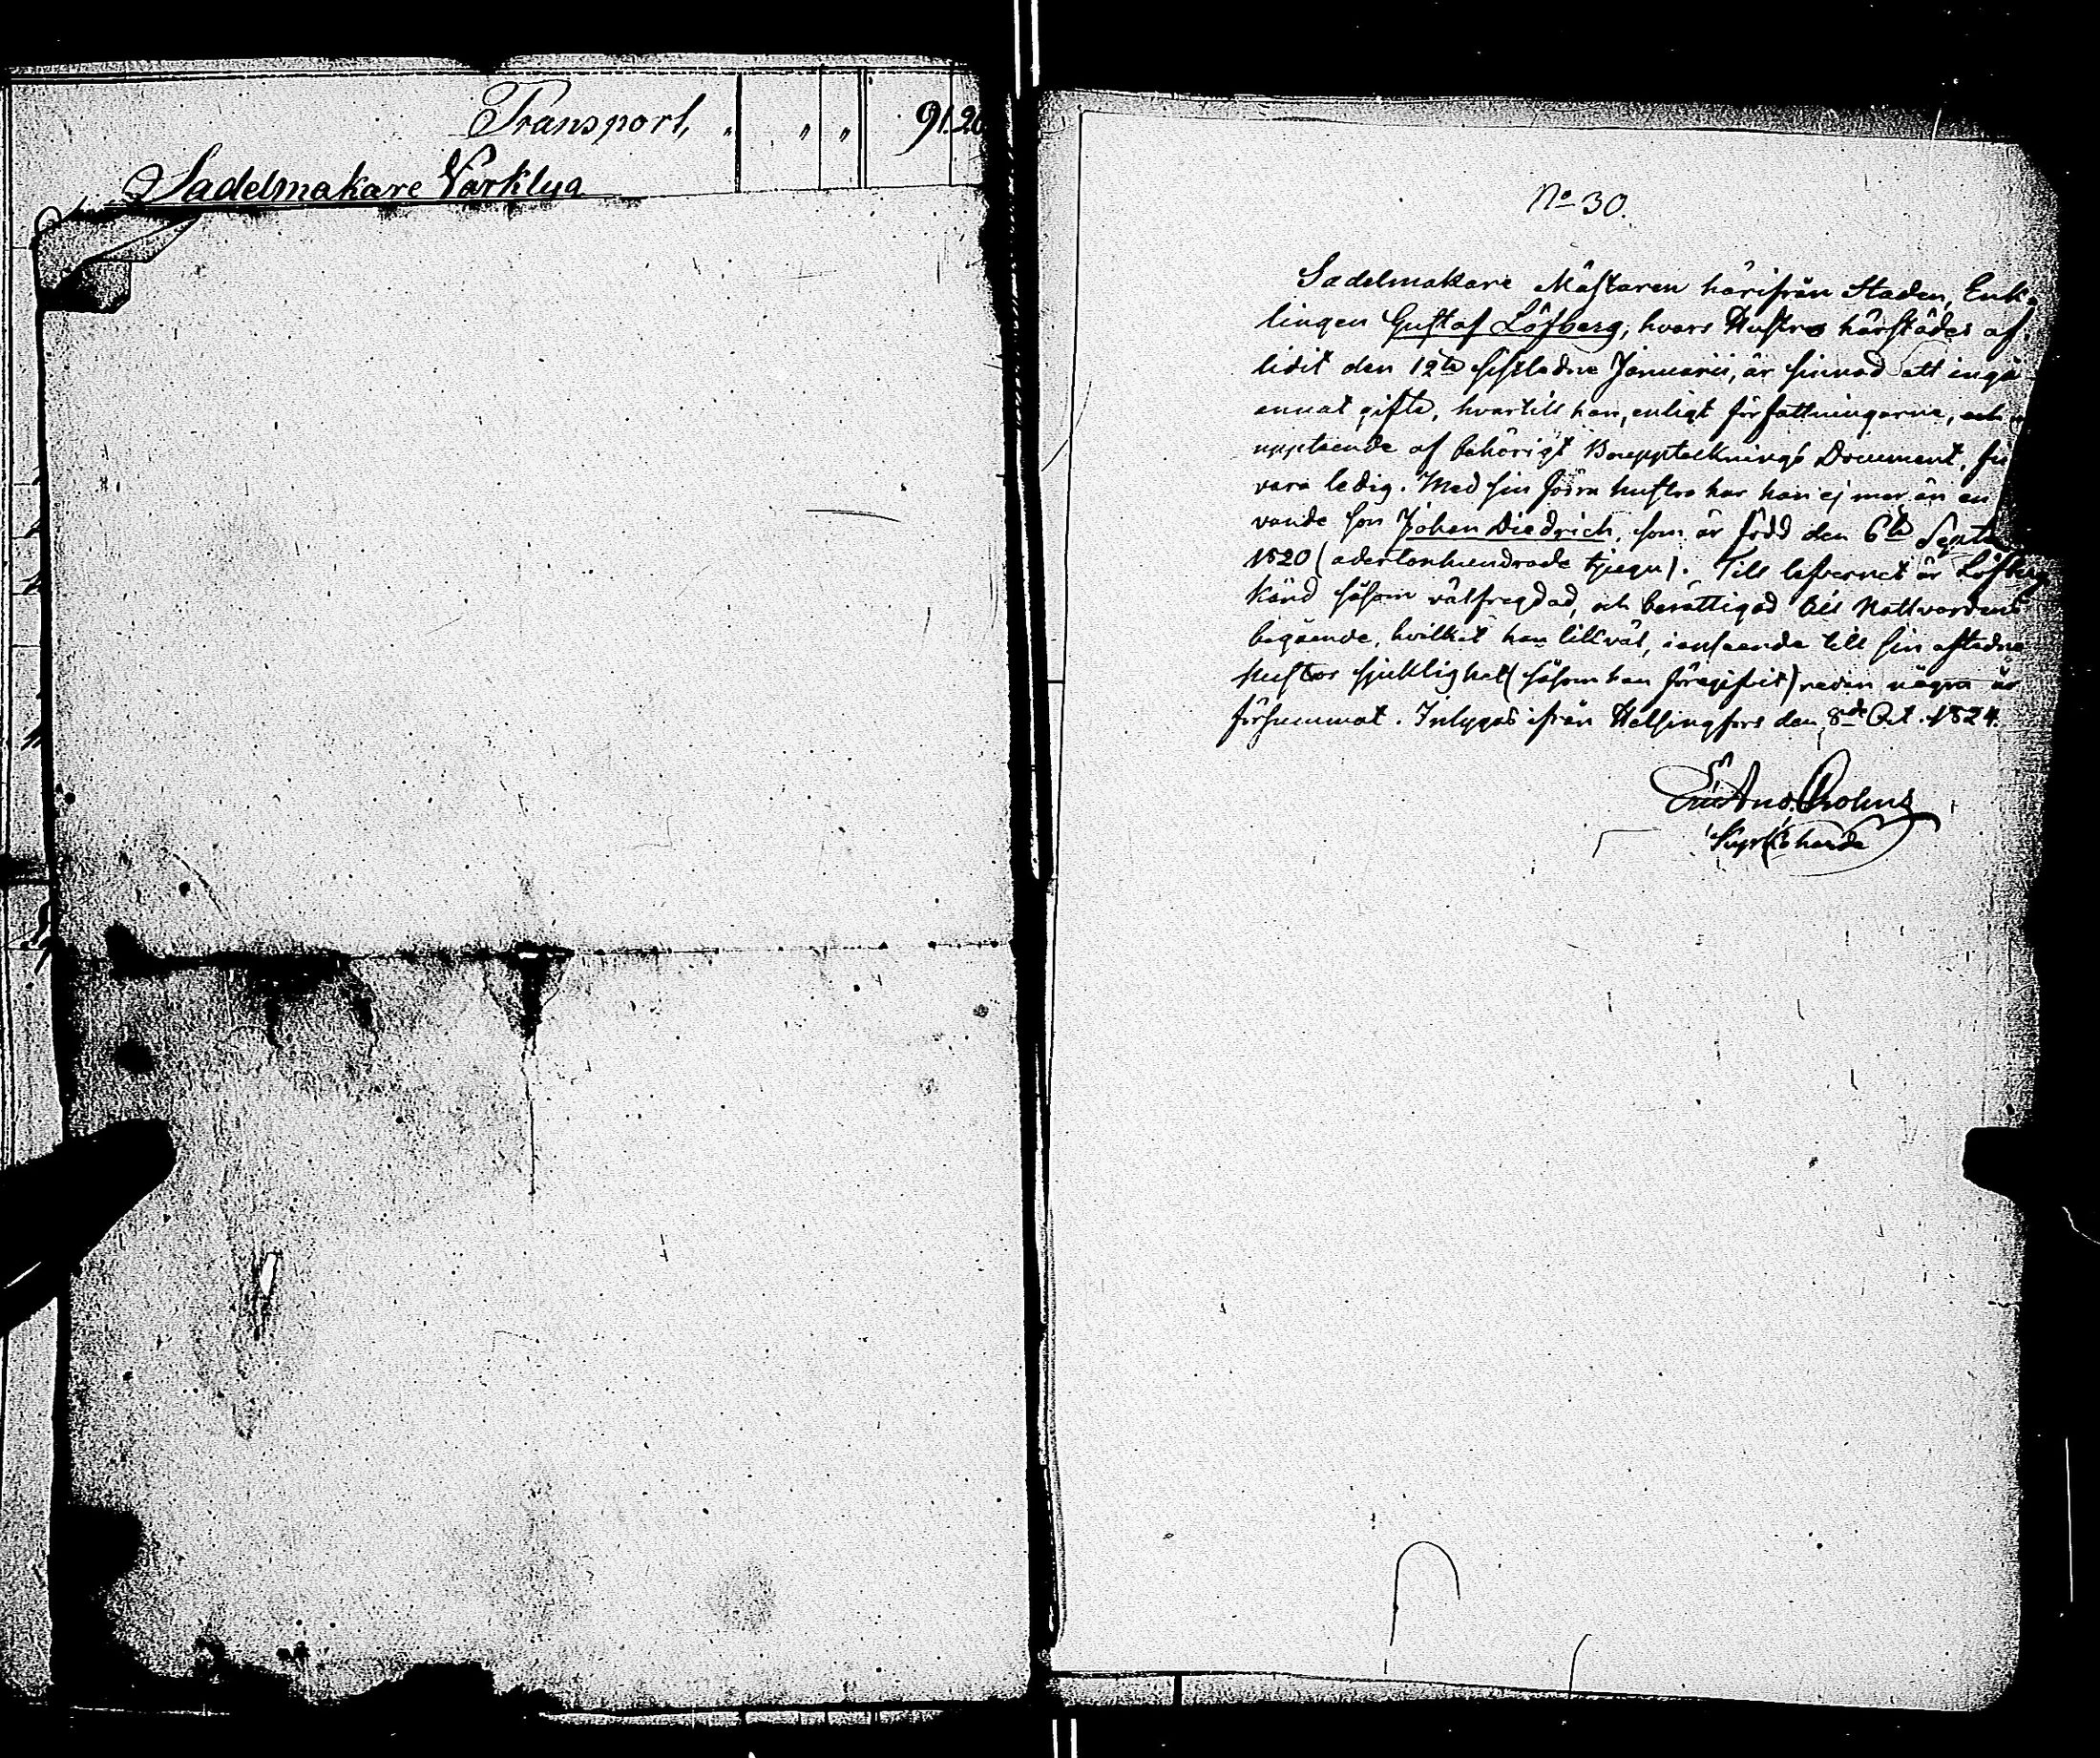 Transport, " " " 91.20
Sadelmakare Varktyg
No 30.
Sadelmakare Mästaren härifrån Staden, Enk-
lingen Gustaf Löfberg, hvars Hustru härstädes af-
lidit den 12te sistledne Januarii, är sinnad att ingå
annat gifte, hvartill han, enligt författningarne, och
uppteende af behörigt Boupptecknings Document,
vara ledig. Med sin förra hustru har han ej mer än en
vande son Johan Diedrich, som är född den 6te Sept
1820 (adertonhundrade tjugu). Till lefvernet är Löfberg
känd såsom välfregdad, och berättigad till Nattvardens
begående, hvilket han likväl, i anseende till sin aflidne
hustrus sjuklighet (såsom han föregifvit) redan några år
försummat. Intygas ifrån Helsingfors den 8de Oct. 1824.
Eric And. Crohns
Kyrkoherde